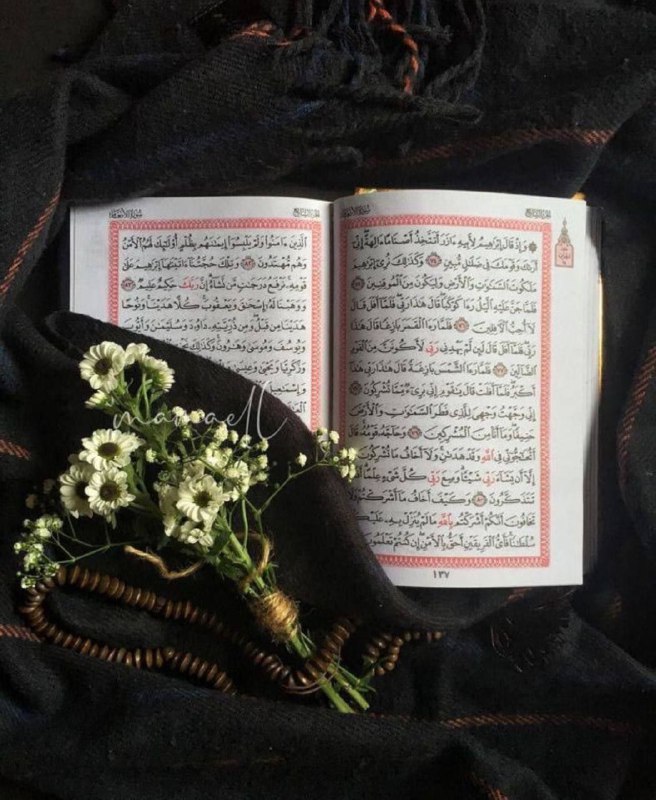 سورة الأنعام
الجزء السابع
۞ وَإِذْ قَالَ إِبْرَٰهِيمُ لِأَبِيهِ ءَازَرَ أَتَتَّخِذُ أَصْنَامًا ءَالِهَةً إِنِّىٓ
أَرَىٰكَ وَقَوْمَكَ فِى ضَلَٰلٍ مُّبِينٍ ٧٤ وَكَذَٰلِكَ نُرِىٓ إِبْرَٰهِيمَ
مَلَكُوتَ ٱلسَّمَٰوَٰتِ وَٱلْأَرْضِ وَلِيَكُونَ مِنَ ٱلْمُوقِنِينَ ٧٥
فَلَمَّا جَنَّ عَلَيْهِ ٱلَّيْلُ رَءَا كَوْكَبًا قَالَ هَٰذَا رَبِّى فَلَمَّآ أَفَلَ قَالَ
لَآ أُحِبُّ ٱلْءَافِلِينَ ٧٦ فَلَمَّا رَءَا ٱلْقَمَرَ بَازِغًا قَالَ هَٰذَا
رَبِّى فَلَمَّآ أَفَلَ قَالَ لَئِن لَّمْ يَهْدِنِى رَبِّى لَأَكُونَنَّ مِنَ ٱلْقَوْمِ
ٱلضَّآلِّينَ ٧٧ فَلَمَّا رَءَا ٱلشَّمْسَ بَازِغَةً قَالَ هَٰذَا رَبِّى هَٰذَآ
أَكْبَرُ فَلَمَّآ أَفَلَتْ قَالَ يَٰقَوْمِ إِنِّى بَرِىٓءٌ مِّمَّا تُشْرِكُونَ ٧٨
إِنِّى وَجَّهْتُ وَجْهِىَ لِلَّذِى فَطَرَ ٱلسَّمَٰوَٰتِ وَٱلْأَرْضَ
حَنِيفًا وَمَآ أَنَا۠ مِنَ ٱلْمُشْرِكِينَ ٧٩ وَحَآجَّهُۥ قَوْمُهُۥ قَالَ
أَتُحَٰٓجُّوٓنِّى فِى ٱللَّهِ وَقَدْ هَدَىٰنِ وَلَآ أَخَافُ مَا تُشْرِكُونَ
بِهِۦٓ إِلَّآ أَن يَشَآءَ رَبِّى شَيْـًٔا وَسِعَ رَبِّى كُلَّ شَىْءٍ عِلْمًا أَفَلَا
تَتَذَكَّرُونَ ٨٠ وَكَيْفَ أَخَافُ مَآ أَشْرَكْتُمْ وَلَا
تَخَافُونَ أَنَّكُمْ أَشْرَكْتُم بِٱللَّهِ مَا لَمْ يُنَزِّلْ بِهِۦ عَلَيْكُمْ
سُلْطَٰنًا فَأَىُّ ٱلْفَرِيقَيْنِ أَحَقُّ بِٱلْأَمْنِ إِن كُنتُمْ تَعْلَمُونَ
١٣٧
الجزء السابع
سورة الأنعام
ٱلَّذِينَ ءَامَنُوا۟ وَلَمْ يَلْبِسُوٓا۟ إِيمَٰنَهُم بِظُلْمٍ أُو۟لَٰٓئِكَ لَهُمُ ٱلْأَمْنُ
وَهُم مُّهْتَدُونَ ٨٢ وَتِلْكَ حُجَّتُنَآ ءَاتَيْنَٰهَآ إِبْرَٰهِيمَ عَلَىٰ
قَوْمِهِۦ نَرْفَعُ دَرَجَٰتٍ مَّن نَّشَآءُ إِنَّ رَبَّكَ حَكِيمٌ عَلِيمٌ ٨٣
وَوَهَبْنَا لَهُۥٓ إِسْحَٰقَ وَيَعْقُوبَ كُلًّا هَدَيْنَا وَنُوحًا
هَدَيْنَا مِن قَبْلُ وَمِن ذُرِّيَّتِهِۦ دَاوُۥدَ وَسُلَيْمَٰنَ وَأَيُّوبَ
وَيُوسُفَ وَمُوسَىٰ وَهَٰرُونَ وَكَذَٰلِكَ نَجْزِى
وَزَكَرِيَّا وَيَحْيَىٰ وَعِيسَىٰ
وَإِسْمَٰعِيلَ